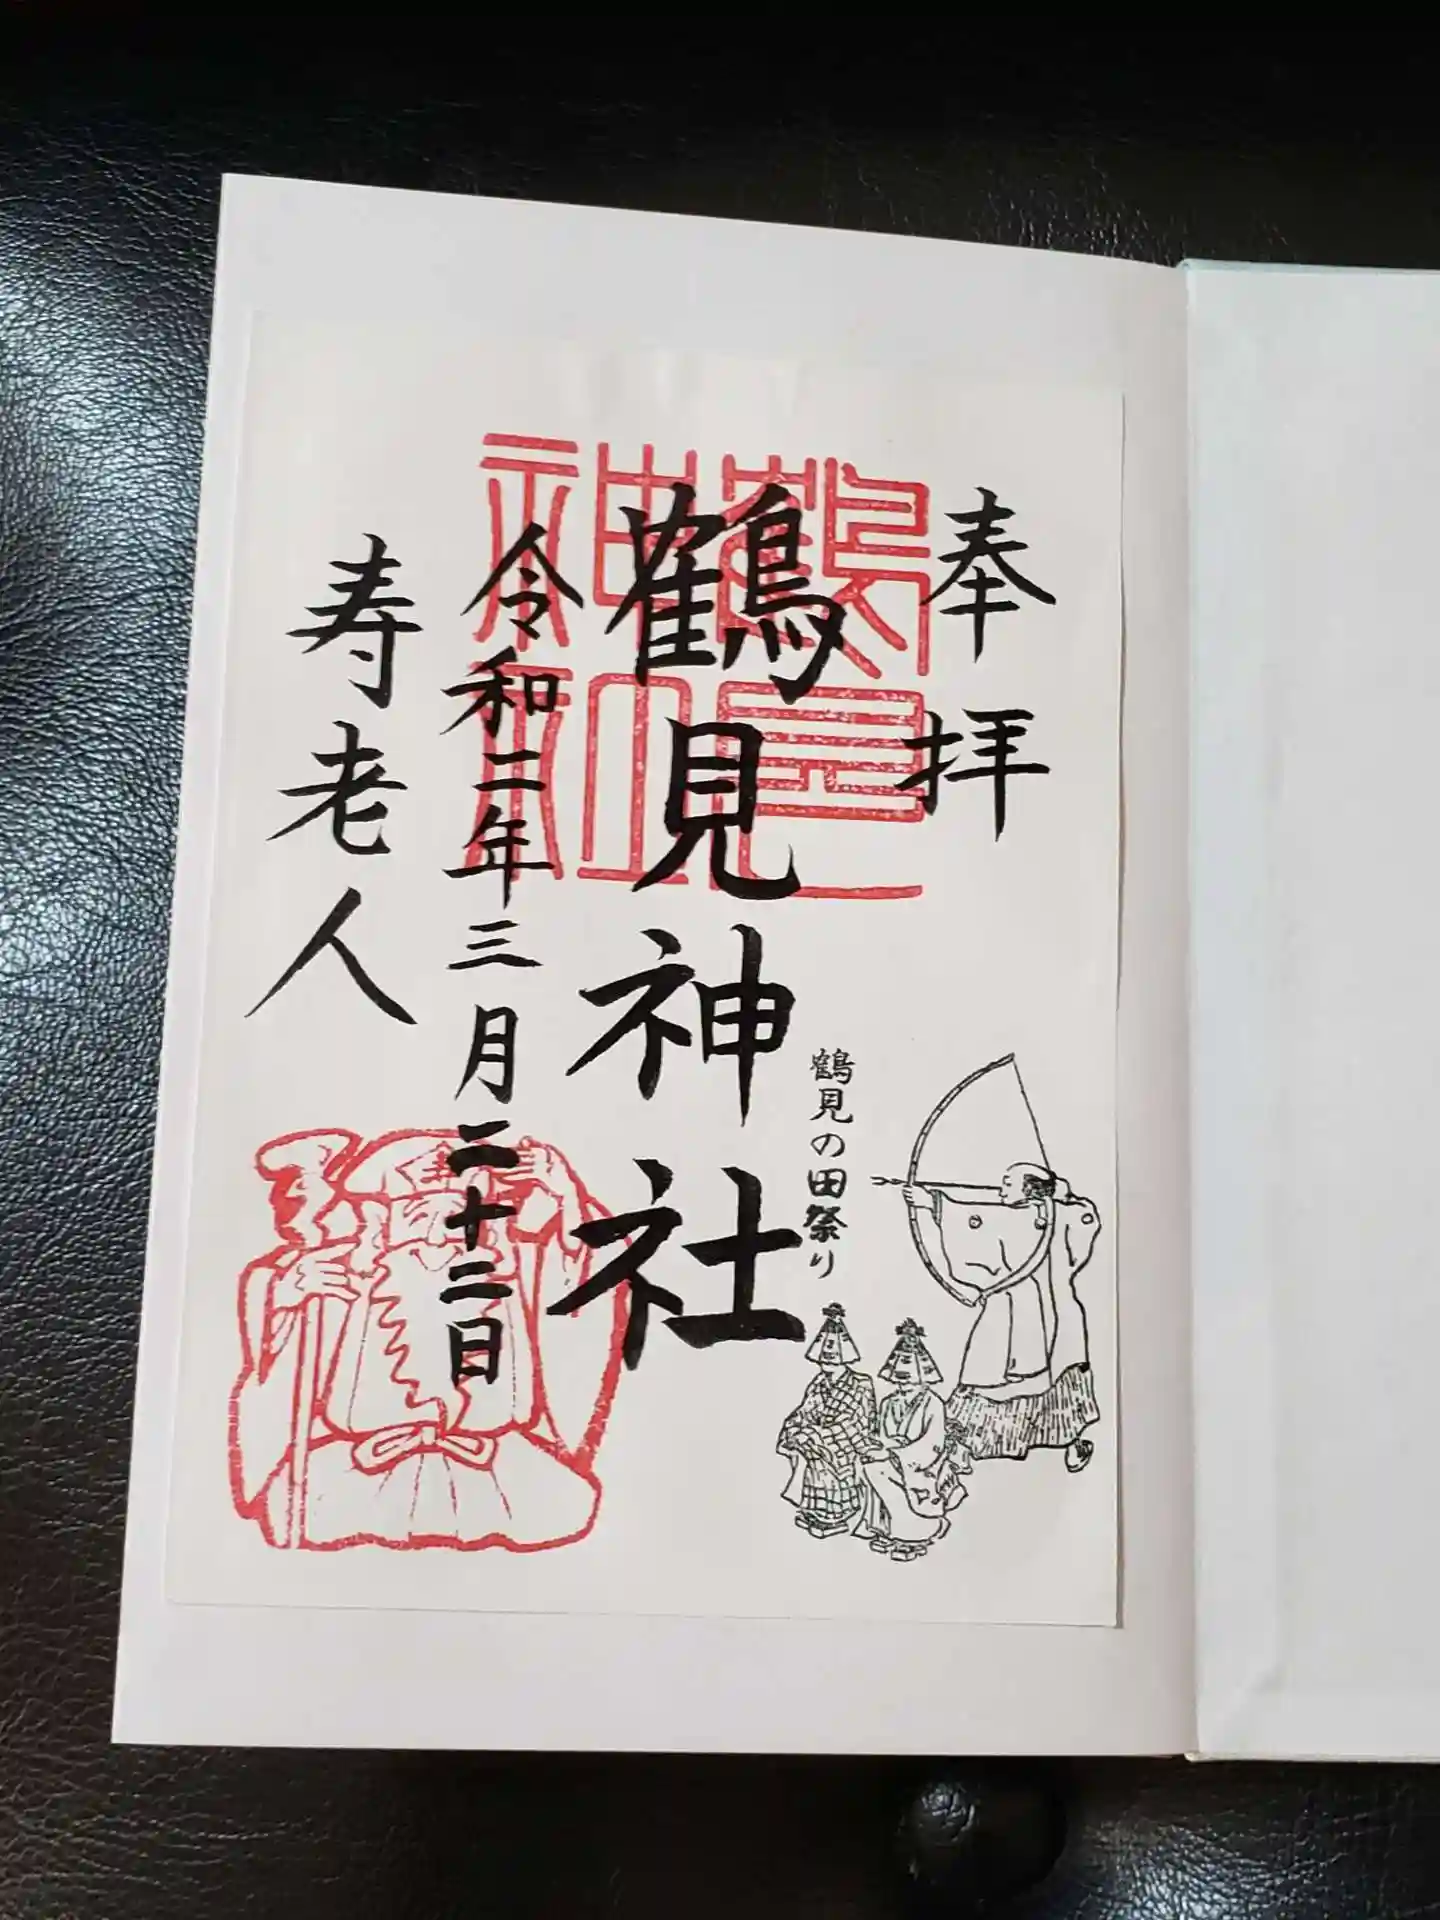 奉拝
鶴見神社
鶴見神社
令和二年三月二十二日
寿老人
鶴見の田祭り